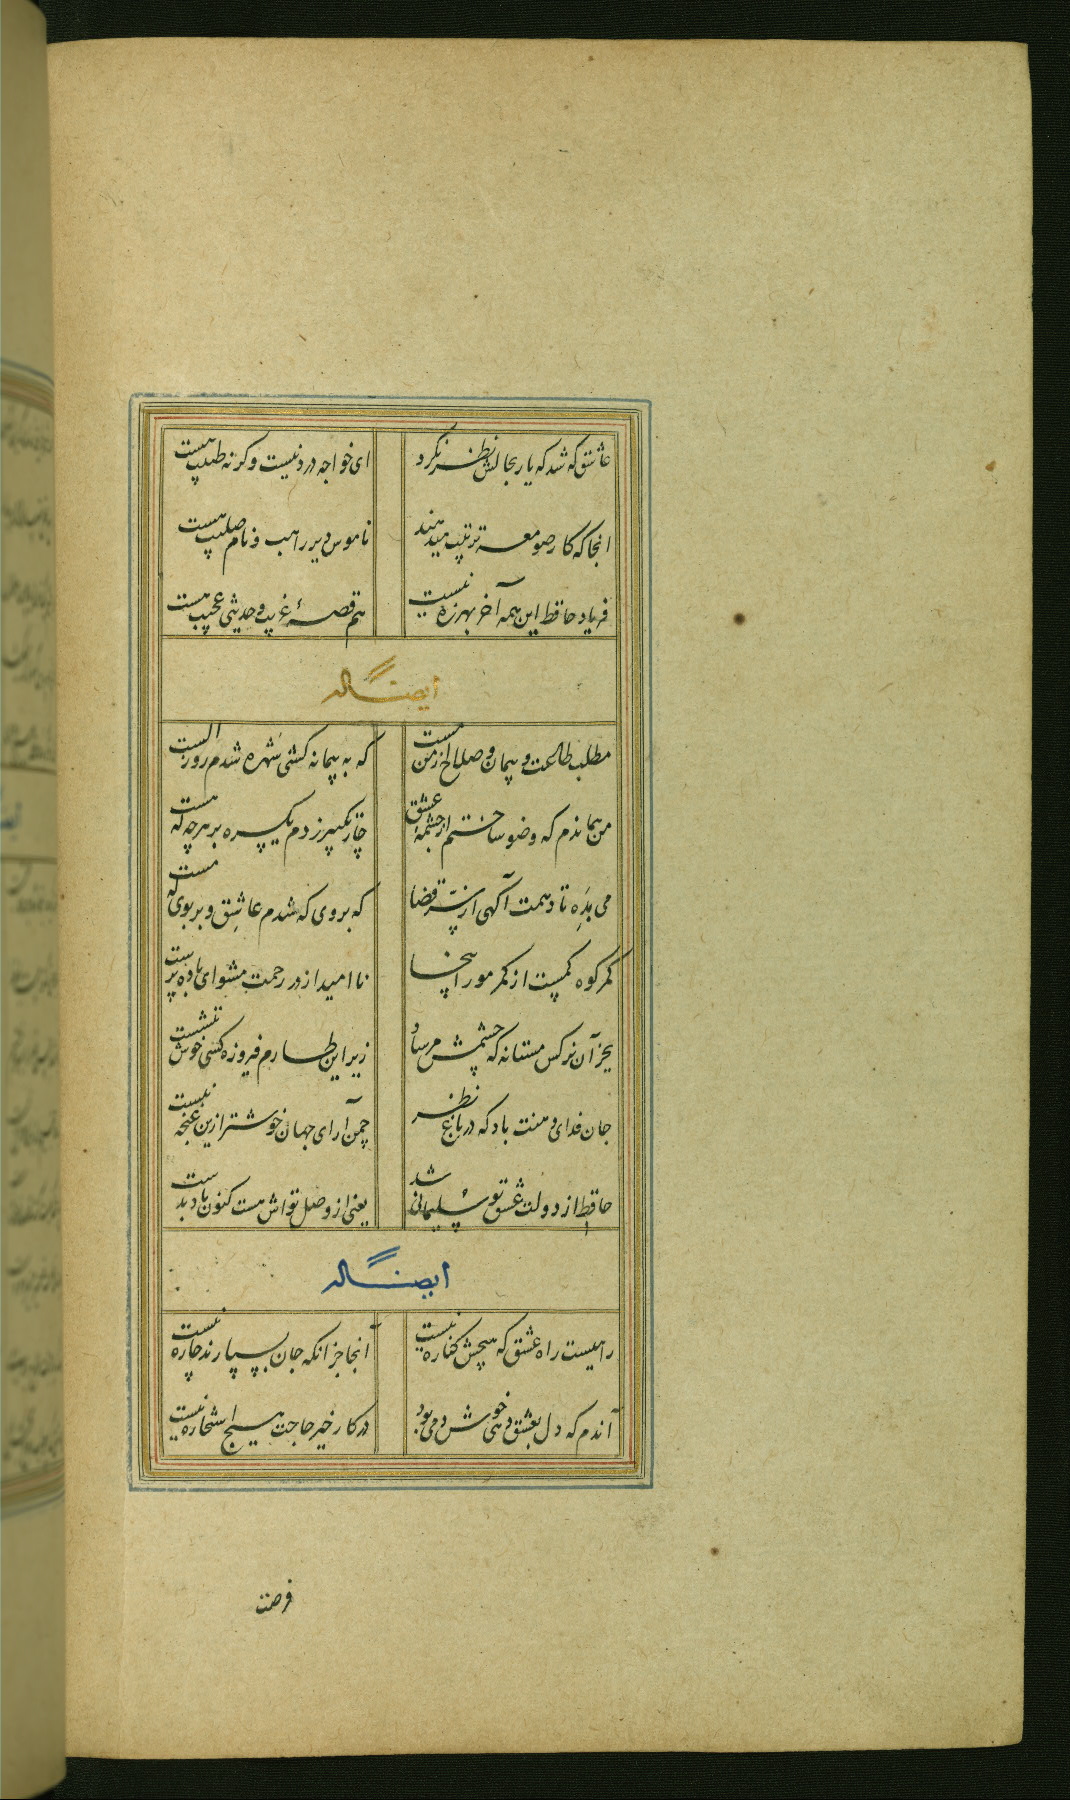 عاشق که شد که یار بحالش نظر نکرد ای خواجه درد نیست وکرنه طبیب هست
انجا که کار صومعه ترتیب میدهند ناموس دیر راهب و نام صلیب هست
فریاد حافظ این همه آخر بهرزه نیست هم قصهٔ غریب و حدیثی عجیب هست
ایضاً له
مطلب طاعت و پیمان و صلاح از من مست که به پیمانه کشی شهره شدم روز الست
من هماندم که وضو ساختم از چشمهٔ عشق چار تکبیر زدم یکسره بر هر چه که هست
می بده تا دهمت آکهی از سرّ قضا که بروی که شدم عاشق و بر بوی که مست
کمر کوه کمست از کمر مور انجا نا امید از در رحمت مشو ای باده پرست
بجز آن نرکس مستانه که چشمش مرساد زیر این طارم فیروزه کسی خوش ننشست
جان فدای دهنت باد که در باغ نظر چمن آرای جهان خوشتر ازین غنچه نبست
حافظ از دولت عشق تو سلیمانی شد یعنی از وصل تواش هست کنون باد بدست
ایضاً له
راهیست راه عشق که هیچش کناره نیست آنجا جز انکه جان بسپارند چاره نیست
آندم که دل بعشق دهی خوش دمی بود در کار خیر حاجت هیچ استخاره نیست
فرصت